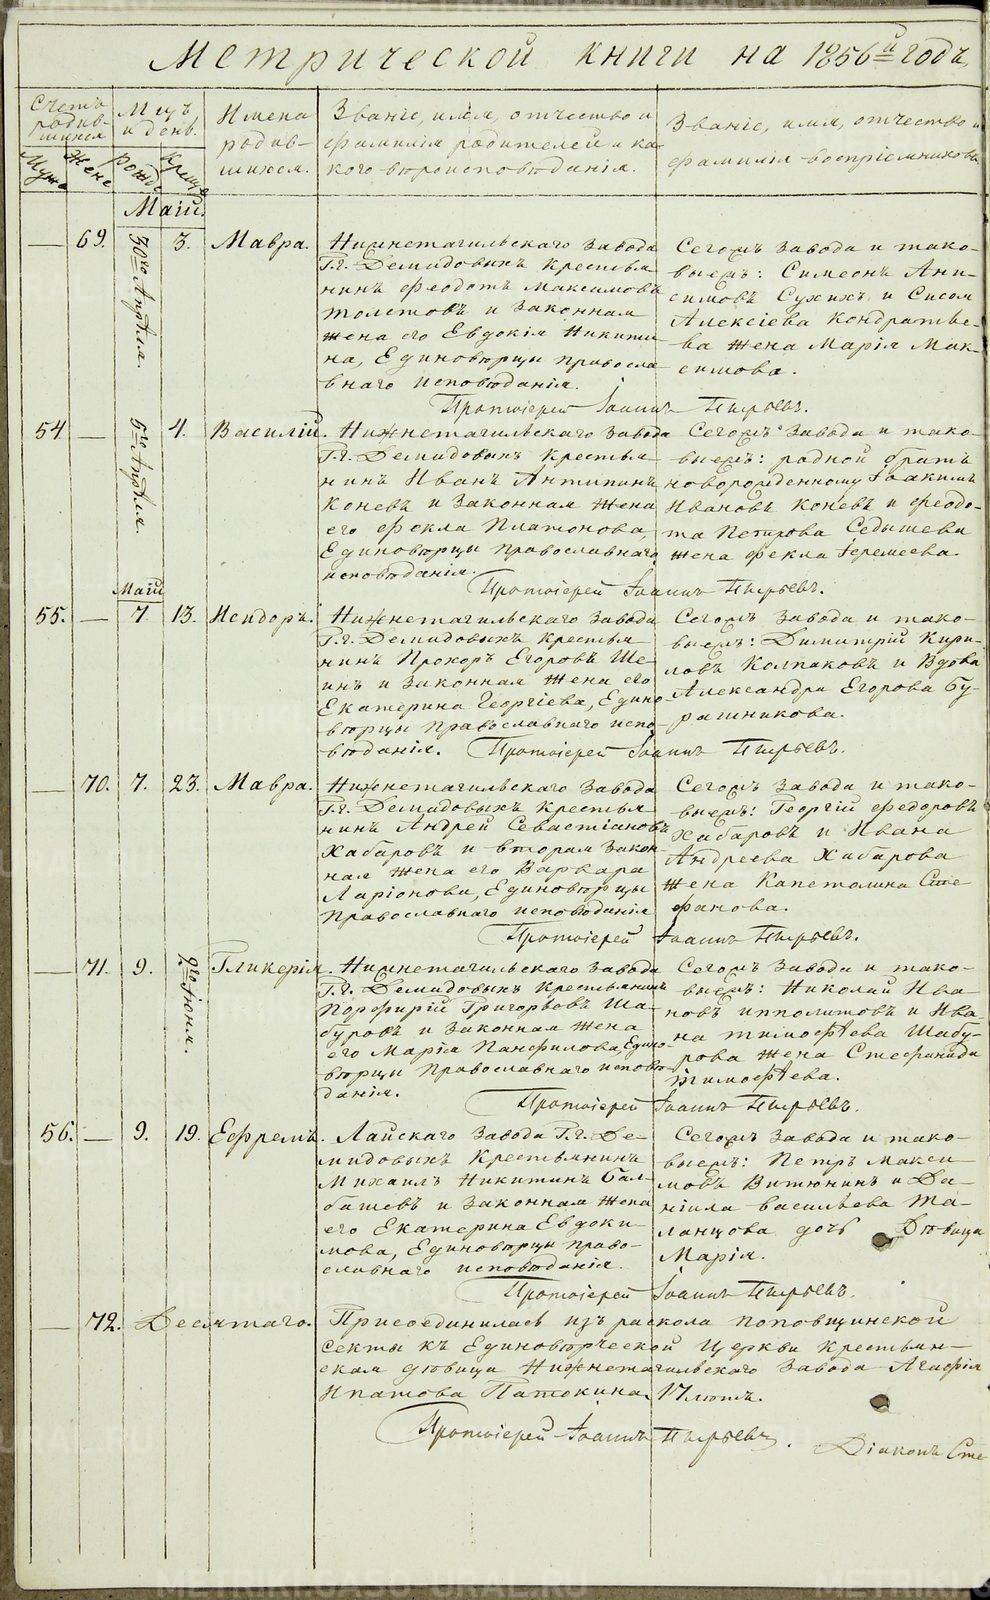 Метрической книги на 1856й годъ
Счетъ родив-шихся
Мужс Жене
Мцъ и день.
рожд Крещ
Имена родив-шихся.
Званіе, имя, отчество и фамилія родителей и ка-кого вѣроисповѣданія.
Званіе, имя, отчество и фамилія воспріемниковъ
Маій.
— 69. 30го Апрѣля. 3. Мавра.
Нижнетагильскаго завода
Г.г. Демидовыхъ крестья-
нинъ Феодотъ Максимовъ
Толстовъ и законная
жена его Евдокія Никити-
на, Единовѣрцы правосла-
внаго исповѣданія.
Сегожъ завода и тако-
выежъ: Симеонъ Ани-
симовъ Сухихъ и Сисоя
Алексіева Кондратье-
ва жена Марія Мак-
симова.
Протоіерей Іоаннъ Пырьевъ.
54 — 5го Апрѣля. 4. Василій.
Нижнетагильскаго завода
Г.г. Демидовыхъ крестья-
нинъ Иванъ Антипинъ
Коневъ и законная жена
его Фекла Платонова,
Единовѣрцы православнаго
исповѣданія.
Сегожъ завода и тако-
выежъ: родной братъ
новорожденному Іоакимъ
Ивановъ Коневъ и Феодо-
та Петрова Седышева
жена Фекла Іеремеева.
Протоіерей Іоаннъ Пырьевъ.
Маій
55. — 7 13. Исидоръ.
Нижнетагильскаго завода
Г.г. Демидовыхъ крестья
нинъ Прохоръ Егоровъ Ше-
инъ и законная жена его
Екатерина Георгіева, Едино
вѣрцы православнаго испо-
вѣданія.
Сегожъ завода и тако-
выежъ: Димитрій Кири-
ловъ Колпаковъ и вдова
Александра Егорова Бу-
рашникова.
Протоіерей Іоаннъ Пырьевъ.
— 70. 7. 23. Мавра.
Нижнетагильскаго завода
Г.г. Демидовыхъ крестья
нинъ Андрей Севастіановъ
Хабаровъ и вторая закон-
ная жена его Варвара
Ларіонова, Единовѣрцы
православнаго исповѣданія
Сегожъ завода и тако-
выежъ: Георгій Федоровъ
Хабаровъ и Ивана
Андреева Хабарова
жена Капетолина Сте-
фанова.
Протоіерей Іоаннъ Пырьевъ.
— 71. 9. 2го Іюня. Гликерія.
Нижнетагильскаго завода
Г.г. Демидовыхъ крестьянинъ
Порфирій Григорьевъ Ша-
буровъ и законная жена
его Марія Панфилова, Едино-
вѣрцы православнаго исповѣ
данія.
Сегожъ завода и тако-
выежъ: Николай Ива
новъ Ипполитовъ и Ива-
на Тимофѣева Шабу-
рова жена Стефанида
Тимофѣева.
Протоіерей Іоаннъ Пырьевъ.
56. — 9. 19. Ефремъ.
Лайскаго завода Г.г. Де-
мидовыхъ крестьянинъ
Михаилъ Никитинъ Бал-
башевъ и законная жена
его Екатерина Евдоки-
мова, Единовѣрцы право-
славнаго исповѣданія.
Сегожъ завода и тако-
выежъ: Петръ Макси
мовъ Витюнинъ и Да-
ніила Васильева Та-
ланцова дочь дѣвица
Марія.
Протоіерей Іоаннъ Пырьевъ.
— 72. Десятаго.
Присоединилась изъ раскола поповщинской
секты къ Единовѣрческой Церкви крестьян-
ская дѣвица Нижнетагильскаго завода Агафія
Ипатова Патокина, 17 лѣтъ.
Протоіерей Іоаннъ Пырьевъ.
Діаконъ Сте
METRIKI.GASO-URAL.RU